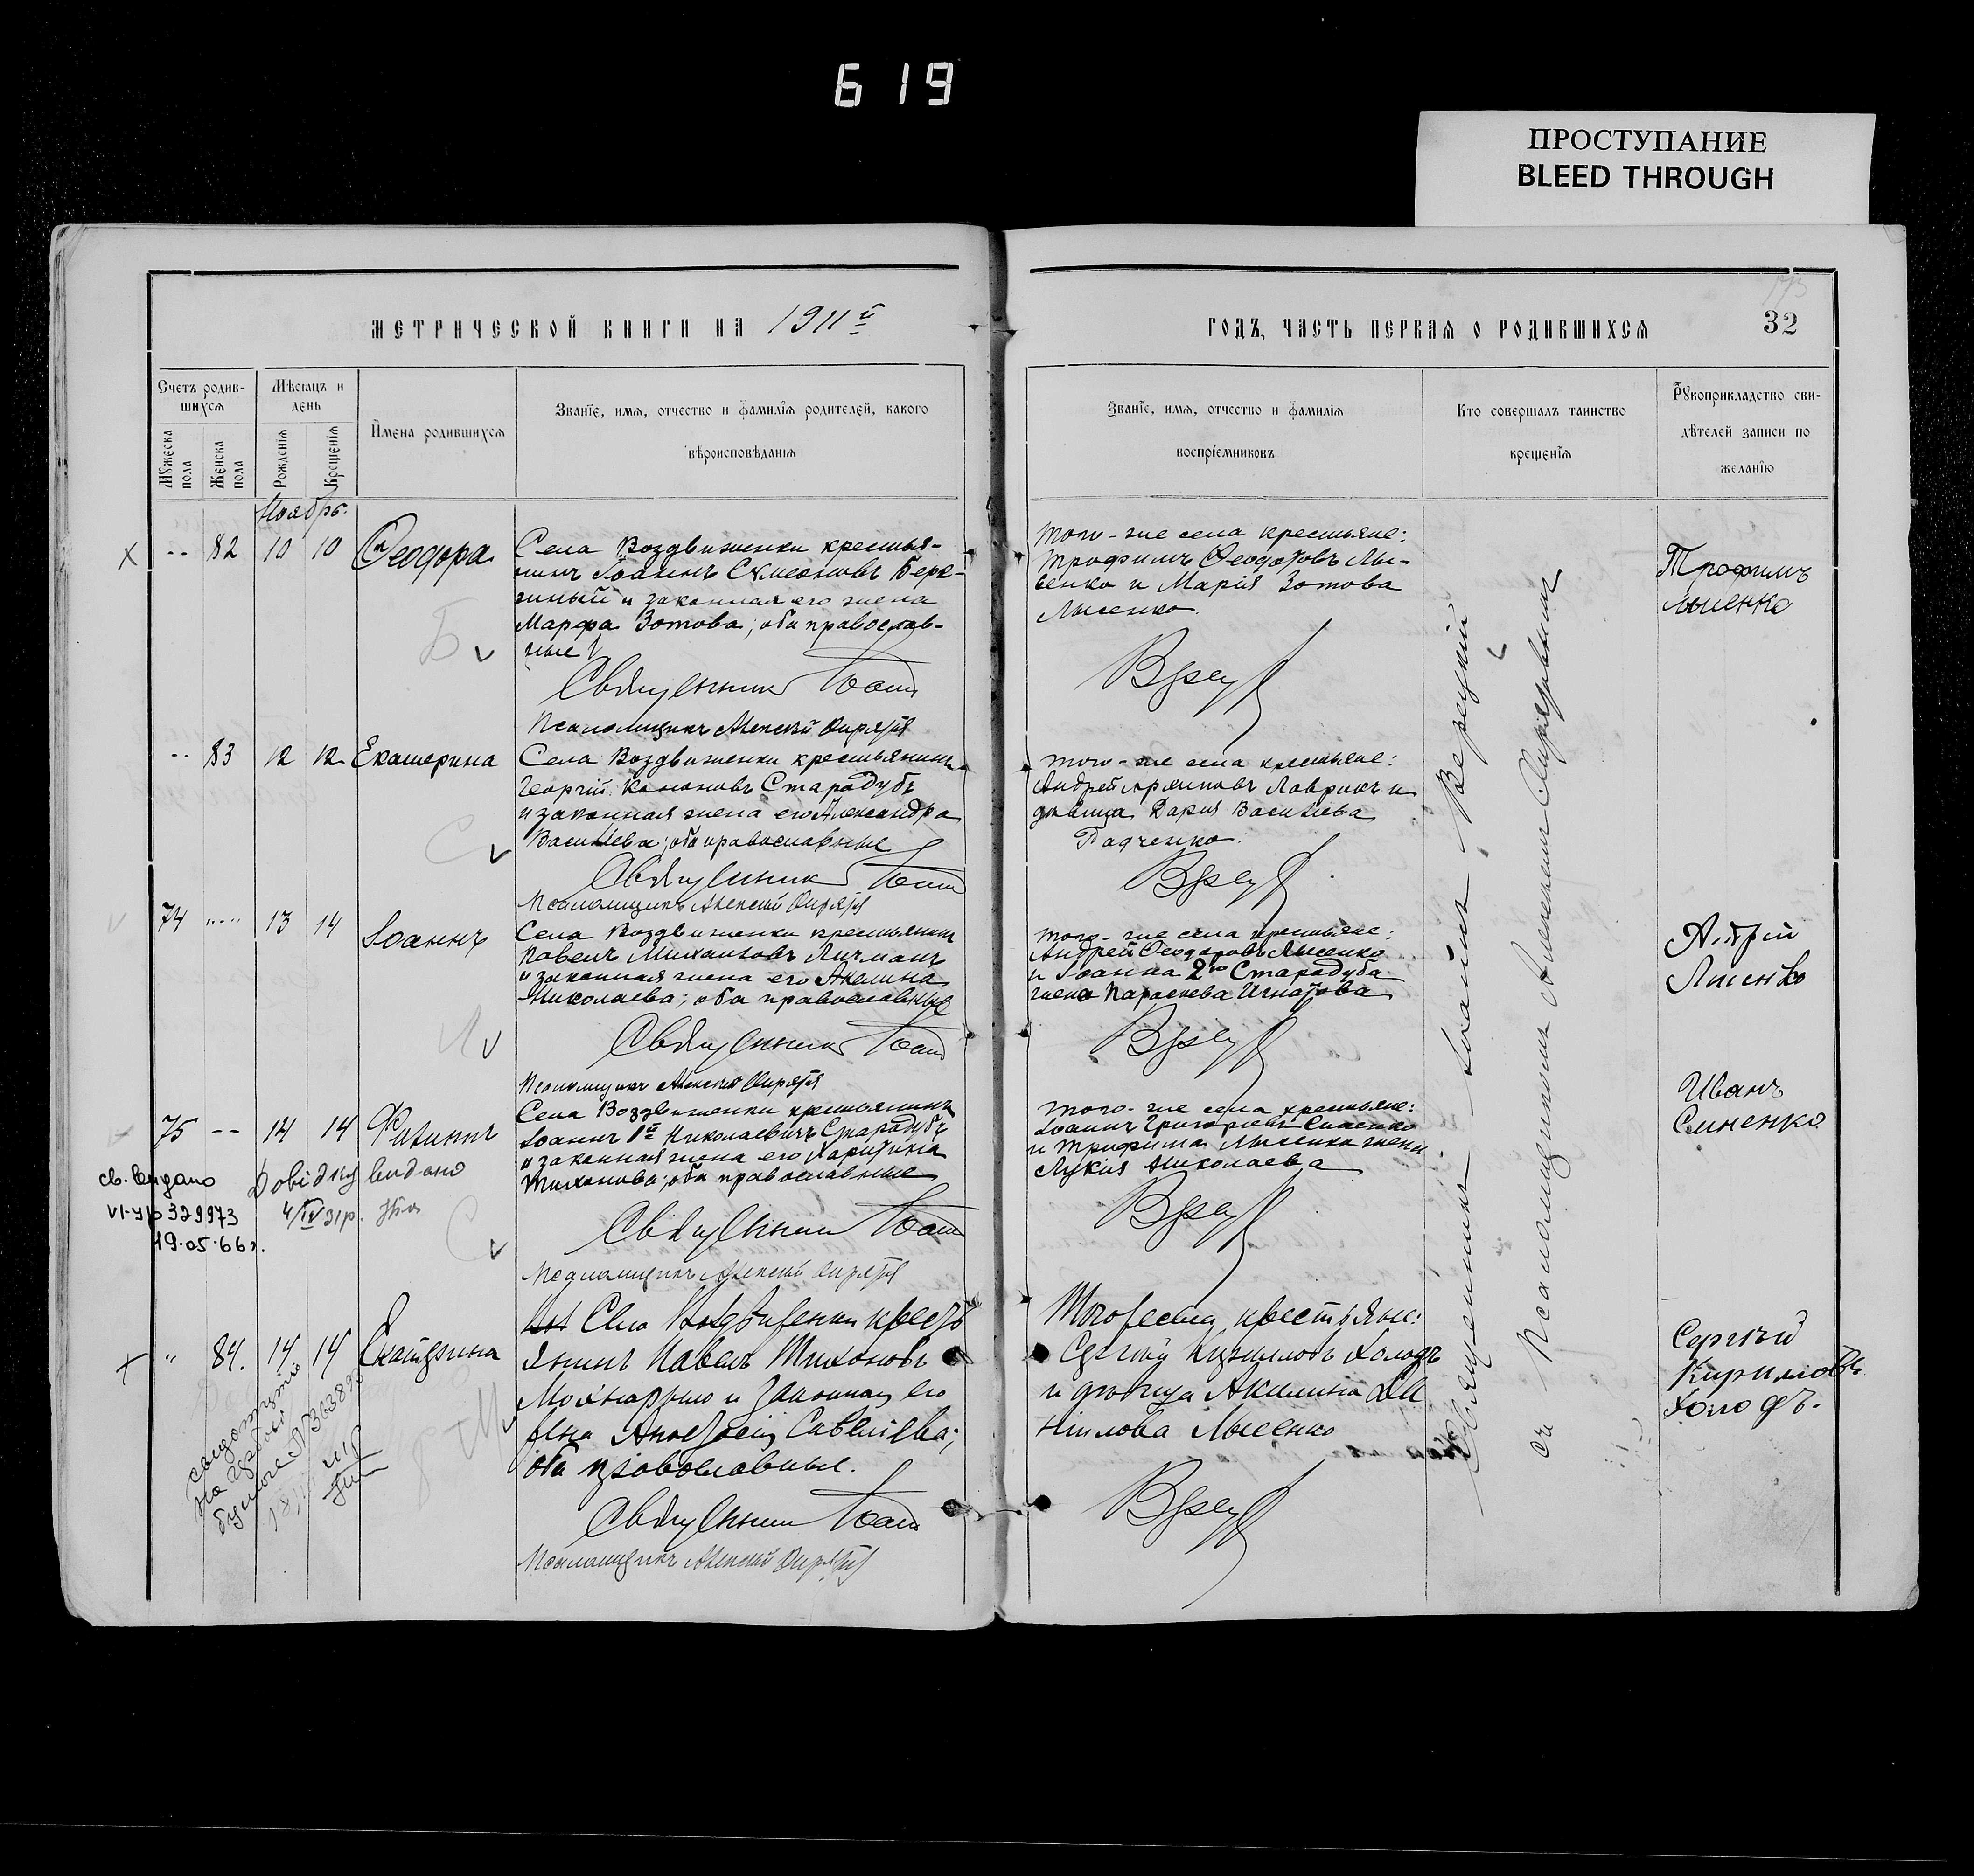 619
ПРОСТУПАНИЕ
BLEED THROUGH
МЕТРИЧЕСКОЙ КНИГИ НА 1911й
ГОДЪ, ЧАСТЬ ПЕРВАЯ О РОДИВШИХСЯ
32
Счетъ родив-
шихся
Мѣсяцъ и
день
Мужеска
пола
Женска
пола
Рожденія
Крещенія
Имена родившихся
Званіе, имя, отчество и фамилія родителей, какого
вѣроисповѣданія
Званіе, имя, отчество и фамилія
воспріемниковъ
Кто совершалъ таинство
крещенія
Рукоприкладство сви-
дѣтелей записи по
желанію
Ноябрь.
82 10 10 Ѳеодора
Села Воздвиженки крестья-
нинъ Іоаннъ Сѵмеоновъ Береж-
ный и законная его жена
Марфа Зотова; оба православ-
ные
Священникъ Іоаннъ
Псаломщикъ Алексій
того-же села крестьяне:
Трофимъ Ѳеодоровъ Лы-
сенко и Марія Зотова
Лысенко.
Трофимъ
Лысенко
83 12 12 Екатерина
Села Воздвиженки крестьянинъ
Георгій Кононовъ Стародубъ
и законная жена его Александра
Васильева; оба православные
Священникъ Іоаннъ
Псаломщикъ Алексій
того-же села крестьяне:
Андрей Лаврикъ и
дѣвица Дарія Васильева
Радченко.
74 13 14 Іоаннъ
Села Воздвиженки крестьянинъ
Павелъ Михаиловъ Личманъ
и законная жена его Акелина
Николаева; оба православные
Священникъ Іоаннъ
Псаломщикъ Алексій
того-же села крестьяне:
Андрей Ѳеодоровъ Лысенко
и Іоанна 2го Стародуба
жена Параскева Игнатова
Андрій
Лисенко
75 14 14 Филиппъ
Села Воздвиженки крестьянинъ
Іоаннъ 1й Николаевичъ Стародубъ
и законная жена его Харитина
Тихонова; оба православные
Священникъ Іоаннъ
Псаломщикъ Алексій
того-же села крестьяне:
Іоаннъ Григоріевъ Синенко
и Трифима Лысенко жена
Лукія Николаева
Иванъ
Синенко
св. выдано
VI-УР 329973
19.05.66г.
Довідку видано
4/IV 31р.
84. 14 14 Екатерина
Села Воздвиженки кресть
янинъ Павелъ Тихоновъ
и законная его
жена Анастасія Савеліева;
оба православные.
Священникъ Іоаннъ
Псаломщикъ Алексій
Тогоже села крестьяне:
Сергій Кирилловъ Холодъ
и дѣвица Акилина Да
ніилова Лысенко
Сергѣй
Кириловъ
Холодъ.
Священникъ Іоаннъ Верецкій
съ Псаломщикомъ Алексіемъ